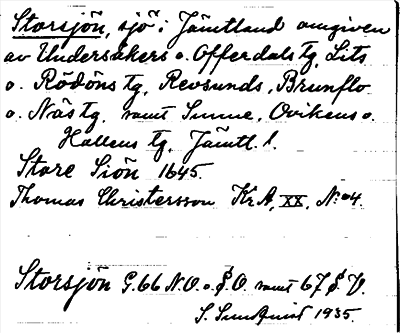 Storsjön, sjö i Jämtland omgiven
av Undersåkers o. Offerdals tg, Lits
o. Rödöns tg, Revsunds, Brunflo
o. Näs tg. samt Sunne, Ovikens o.
Hallens tg, Jämtl. l.
Store Siön 1645.
Thomas Christersson Kr A, XX, No 4.
Storsjön G.66 N.O. o. S.O. samt 67 S.V.
S. Sundquist 1935.